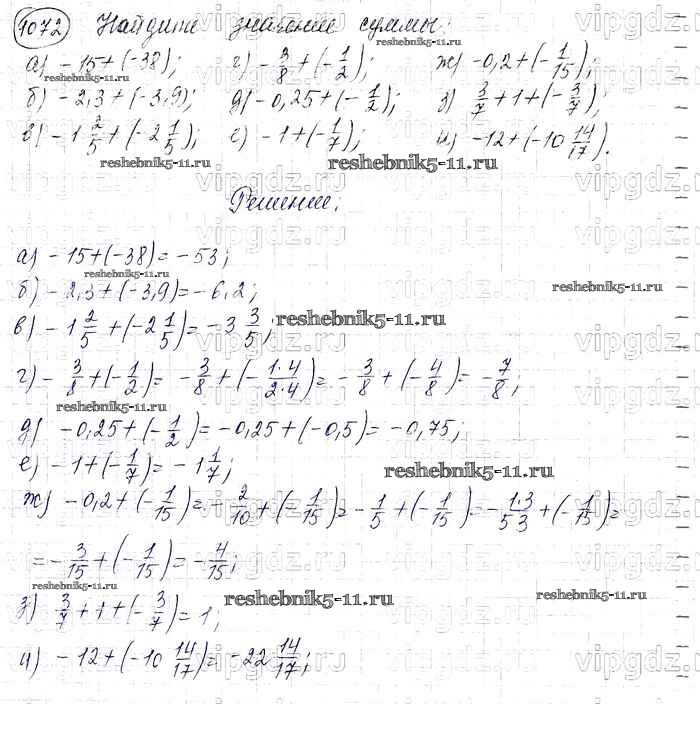 1072 Найдите значение суммы:
а) -15+(-38); г) -3/8+(-1/2); ж) -0,2+(-1/15);
б) -2,3+(-3,9); д) -0,25+(-1/2); з) 3/7+1+(-3/7);
в) -1 2/5+(-2 1/5); е) -1+(-1/7); и) -12+(-10 14/17).
Решение:
а) -15+(-38)=-53;
б) -2,3+(-3,9)=-6,2;
в) -1 2/5+(-2 1/5)=-3 3/5;
г) -3/8+(-1/2)= -3/8+(-1·4/2·4)=-3/8+(-4/8)=-7/8;
д) -0,25+(-1/2)=-0,25+(-0,5)=-0,75;
е) -1+(-1/7)=-1 1/7;
ж) -0,2+(-1/15)=-2/10+(-1/15)=-1/5+(-1/15)=-1·3/5·3+(-1/15)=
=-3/15+(-1/15)=-4/15;
з) 3/7+1+(-3/7)=1;
и) -12+(-10 14/17)=-22 14/17;
reshebnik5-11.ru
vipgdz.ru